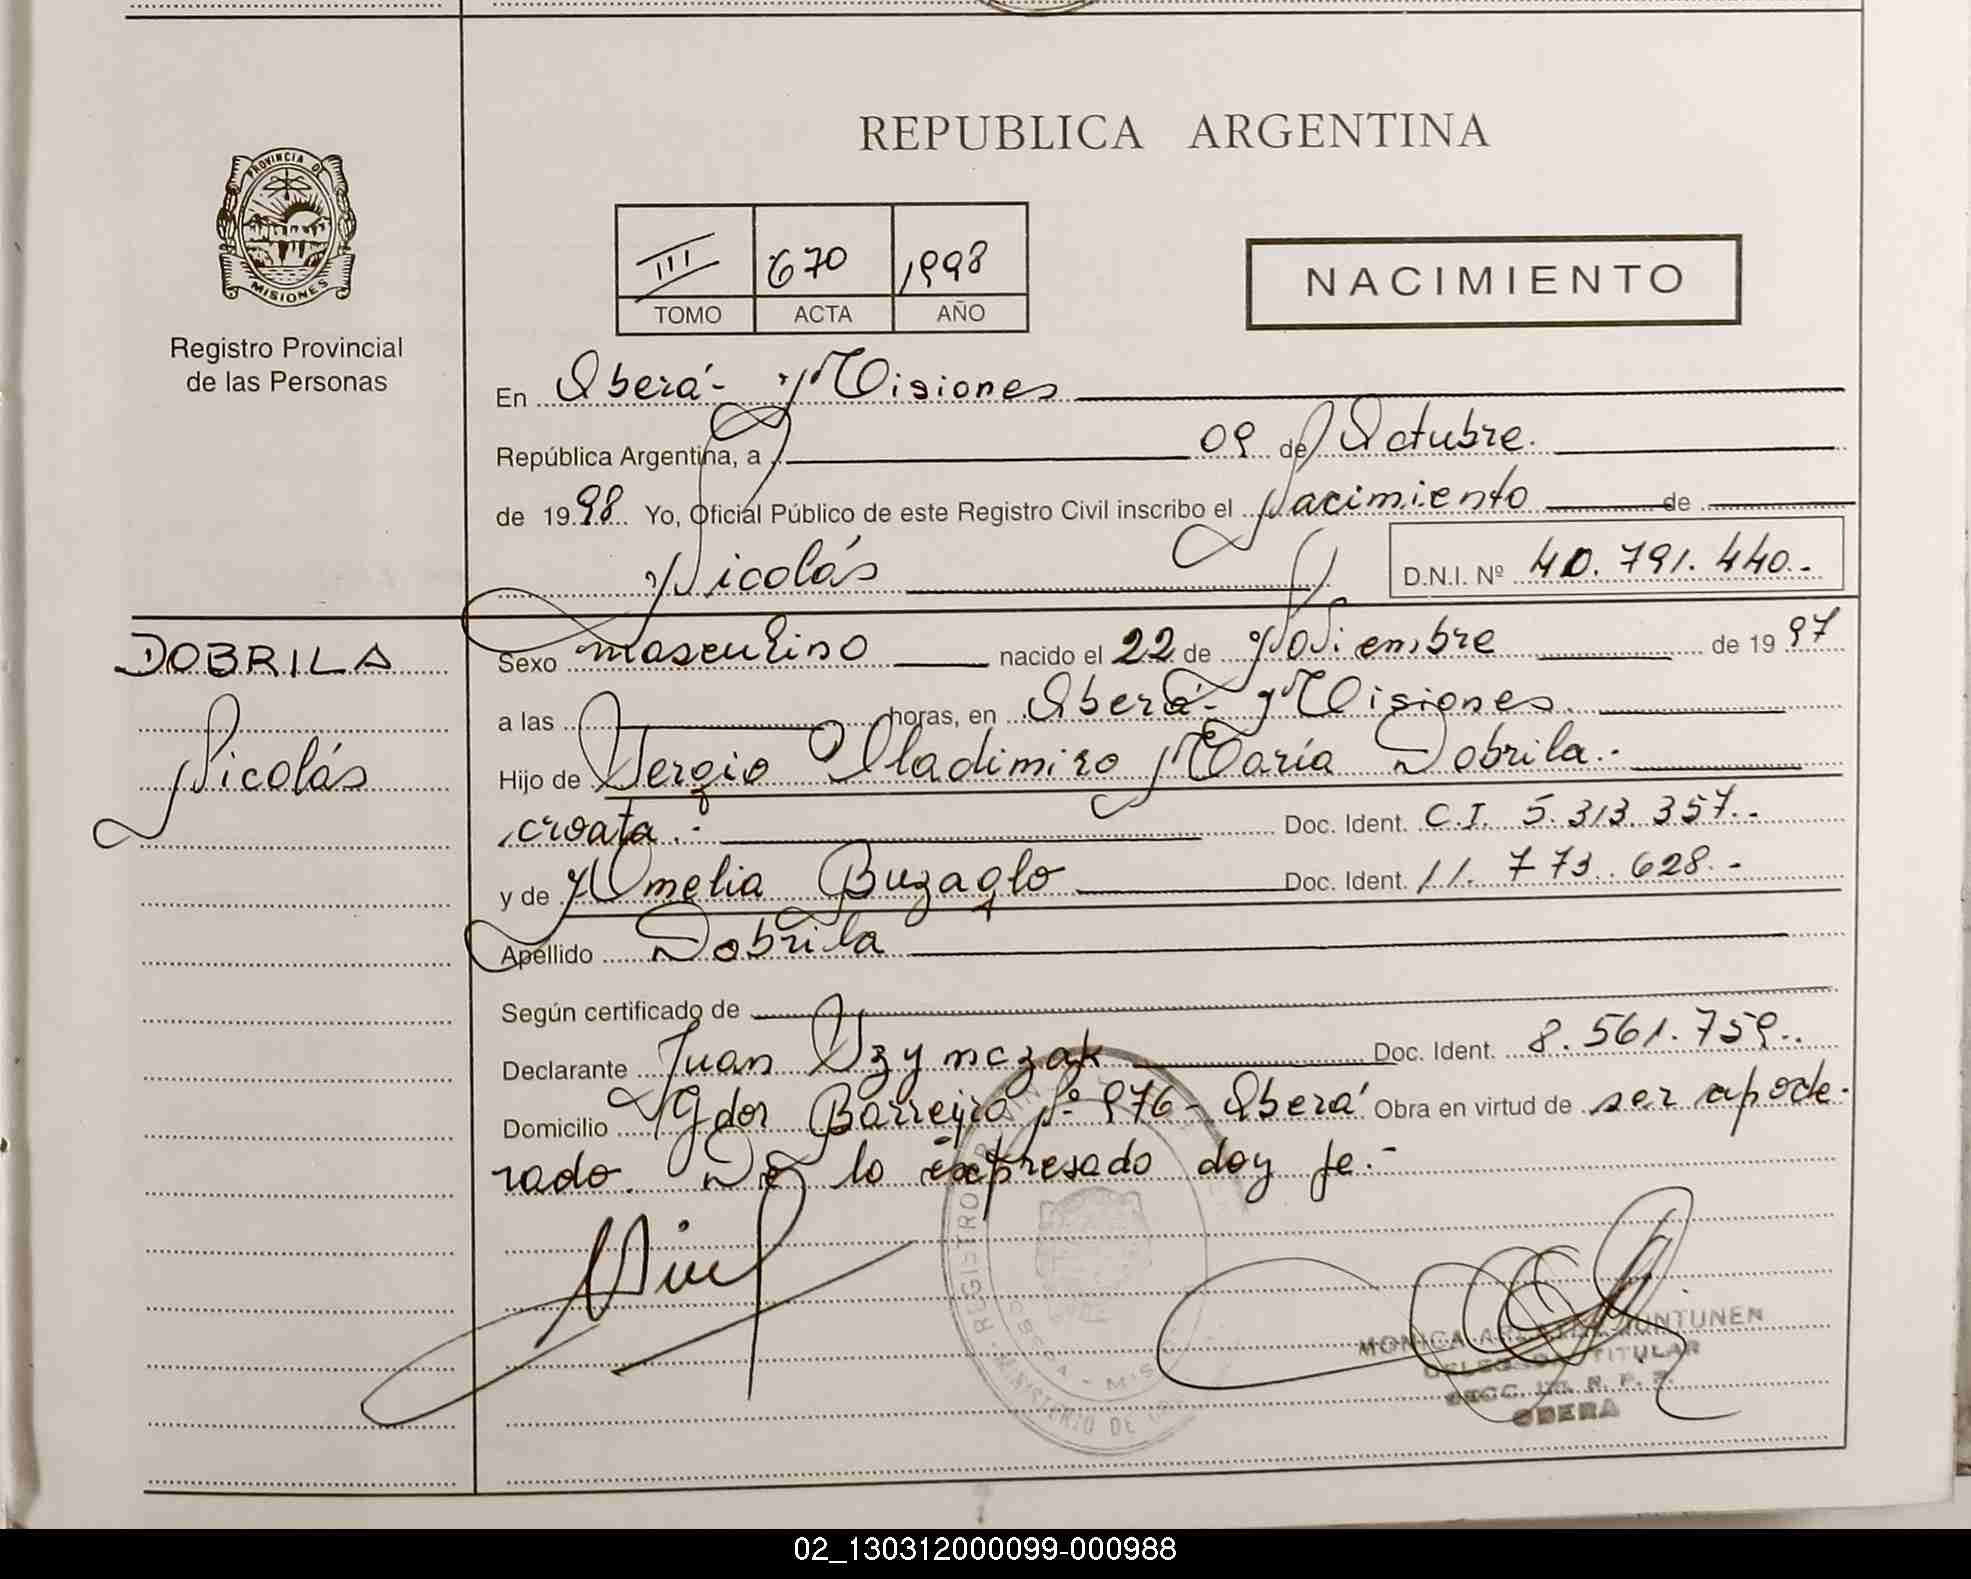 REPUBLICA ARGENTINA
PROVINCIA DE
MISIONES
Registro Provincial
de las Personas
III 670 1998
TOMO ACTA AÑO
NACIMIENTO
En Oberá - Misiones
República Argentina, a 09 de Octubre.
de 1998 Yo, Oficial Público de este Registro Civil inscribo el Nacimiento de
Nicolás D.N.I. Nº 40.791.440.-
DOBRILA
Nicolás
Sexo masculino nacido el 22 de Noviembre de 1997
a las horas, en Oberá - Misiones.
Hijo de Sergio Vladimiro María Dobrila.-
croata.- Doc. Ident. C.I. 5.313.357.-
y de Amelia Buzaglo Doc. Ident. 11.773.628.-
Apellido Dobrila
Según certificado de
Declarante Juan Szymczak Doc. Ident. 8.561.759..
Domicilio Gdor Barreyro Nº 976 - Oberá Obra en virtud de ser apode-
rado. De lo expresado doy fe.-
REGISTRO PROVIN
MINISTERIO DE
MONICA JUNTUNEN
TITULAR
SECC. R. P. P.
OBERA
02_130312000099-000988